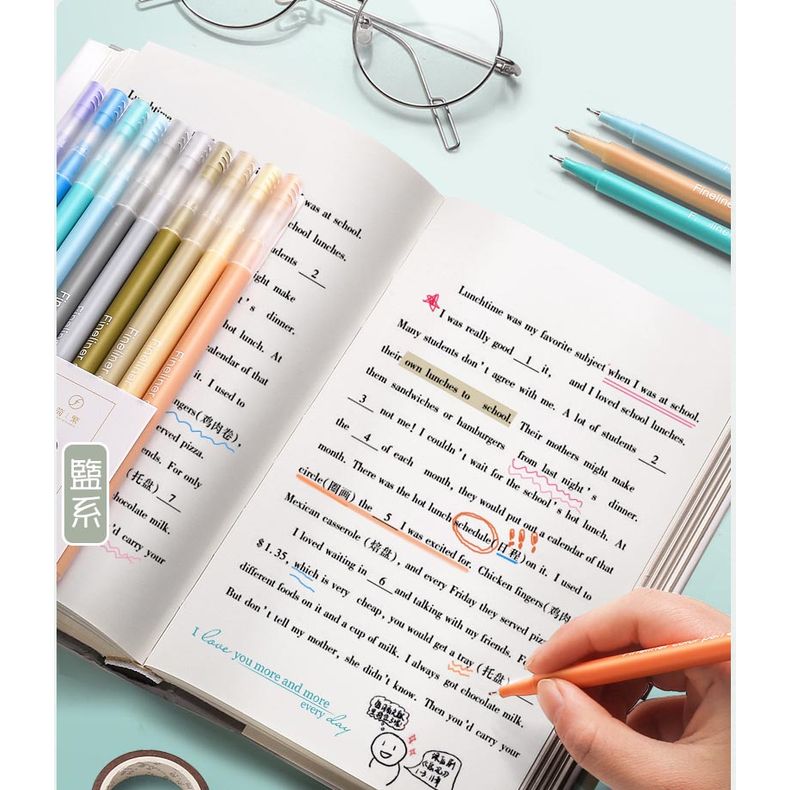 Lunchtime
was at school.
chool lunches.
udents 2
ight make
's dinner.
hot lunch. At
calendar of that
it. I used to
ngers(鸡肉卷),
served pizza.
iends. For only
(托盘) 7
hocolate milk.
'd carry your
Fineliner
Fineliner
Fineliner
Fineliner
系
Fineliner
Fineliner
Fineliner
Lunchtime was my favorite subject when I was at school.
I was really good 1 it, and I loved school lunches.
Many students don't agree with me. A lot of students 2
their own lunches to school. Their mothers might make
them sandwiches or hamburgers from last night's dinner.
3 not me! I couldn't wait for the school's hot lunch. At
the 4 of each month, they would put out a calendar of that
month. There was the hot lunch schedule(日程)on it. I used to
circle(圈画) the 5 I was excited for. Chicken fingers(鸡肉
Mexican casserole (焙盘), and every Friday they served pizz
I loved waiting in 6 and talking with my friends. F
$1.35, which is very cheap, you would get a tray (托盘)
different foods on it and a cup of milk. I always got chocolate milk.
But don't tell my mother, she didn't know. Then you'd carry your
I love you more and more
every day